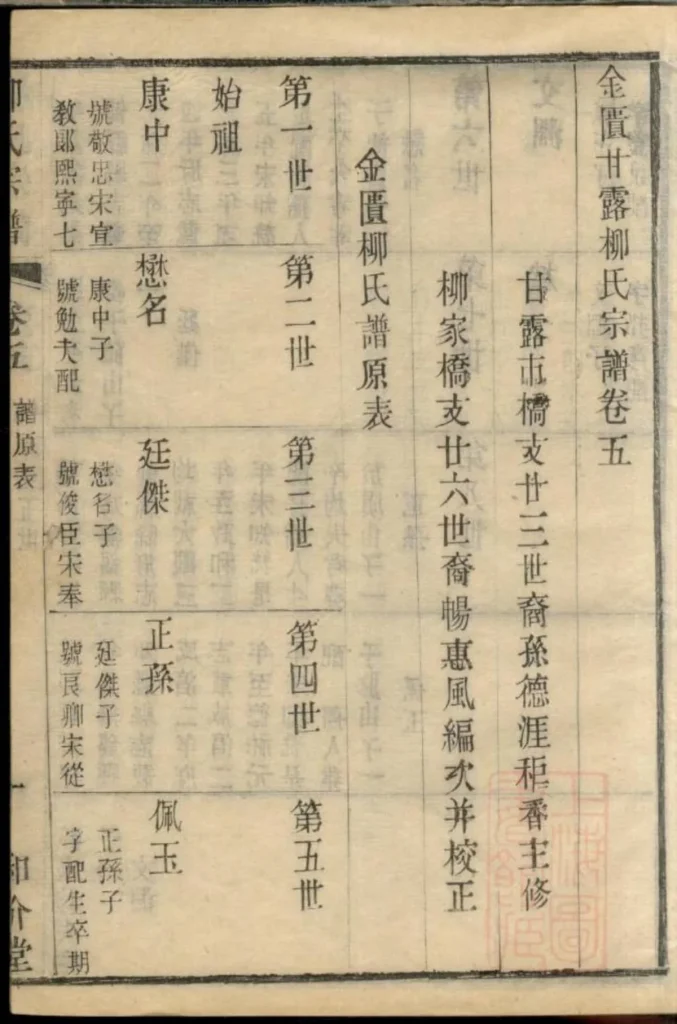 金匱甘露柳氏宗譜卷五
甘露市橋支廿三世裔孫德涯秬香主修
柳家橋支廿六世裔暢惠風編次并校正
金匱柳氏譜原表
第一世
第二世
第三世
第四世
第五世
始祖
康中
號敬忠宋宣
教郎熙寧七
懋名
康中子
號勉夫配
廷傑
懋名子
號俊臣宋奉
正孫
廷傑子
號良卿宋從
佩玉
正孫子
字配生卒期
柳氏宗譜
卷五
譜原表
一
和介堂